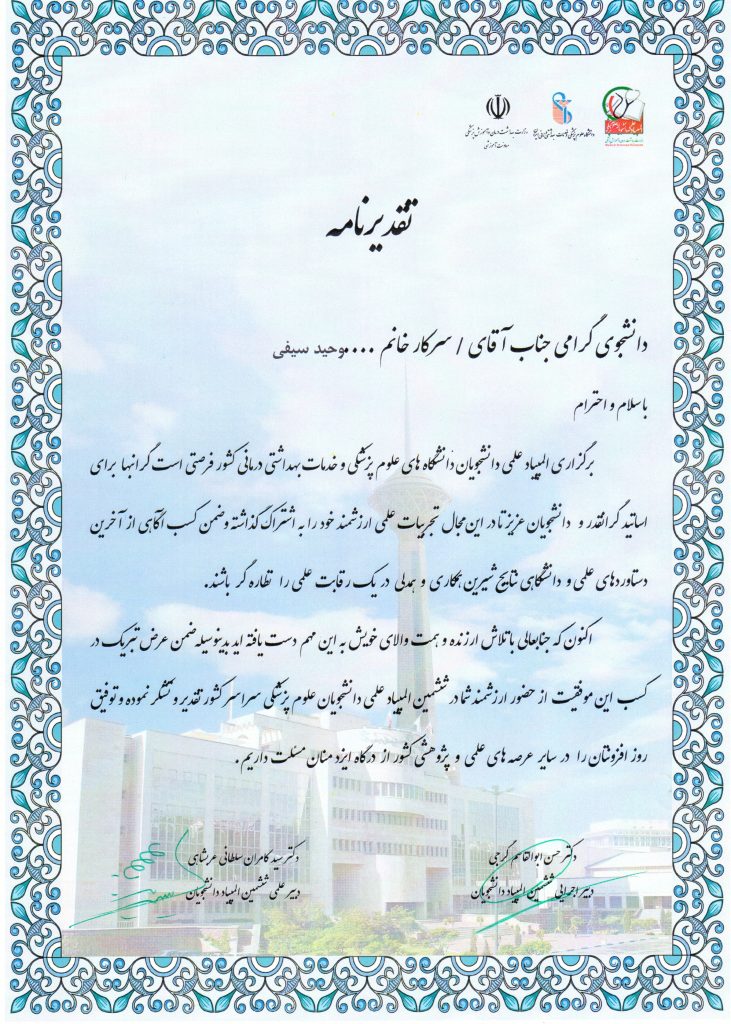 وزارت بهداشت درمان و آموزش پزشکی
معاونت آموزشی
تقدیرنامه
دانشجوی گرامی جناب آقای / سرکار خانم ....وحید سیفی
باسلام و احترام
برگزاری المپیاد علمی دانشجویان دانشگاه های علوم پزشکی و خدمات بهداشتی درمانی کشور فرصتی است گرانبها برای
اساتید گرانقدر و دانشجویان عزیز تا در این مجال تجربیات علمی ارزشمند خود را به اشتراک گذاشته وضمن کسب آگاهی از آخرین
دستاوردهای علمی و دانشگاهی نتایج شیرین همکاری و همدلی در یک رقابت علمی را نظاره گر باشند.
اکنون که جنابعالی با تلاش ارزنده و همت والای خویش به این مهم دست یافته اید بدینوسیله ضمن عرض تبریک در
کسب این موفقیت از حضور ارزشمند شما در ششمین المپیاد علمی دانشجویان علوم پزشکی سراسر کشور تقدیر و تشکر نموده و توفیق
روز افزونتان را در سایر عرصه های علمی و پژوهشی کشور از درگاه ایزد منان مسئلت داریم.
دکتر حسن ابوالقاسم گرجی
دبیر اجرایی ششمین المپیاد دانشجویان
دکتر سید کامران سلطانی عربشاهی
دبیر علمی ششمین المپیاد دانشجویان